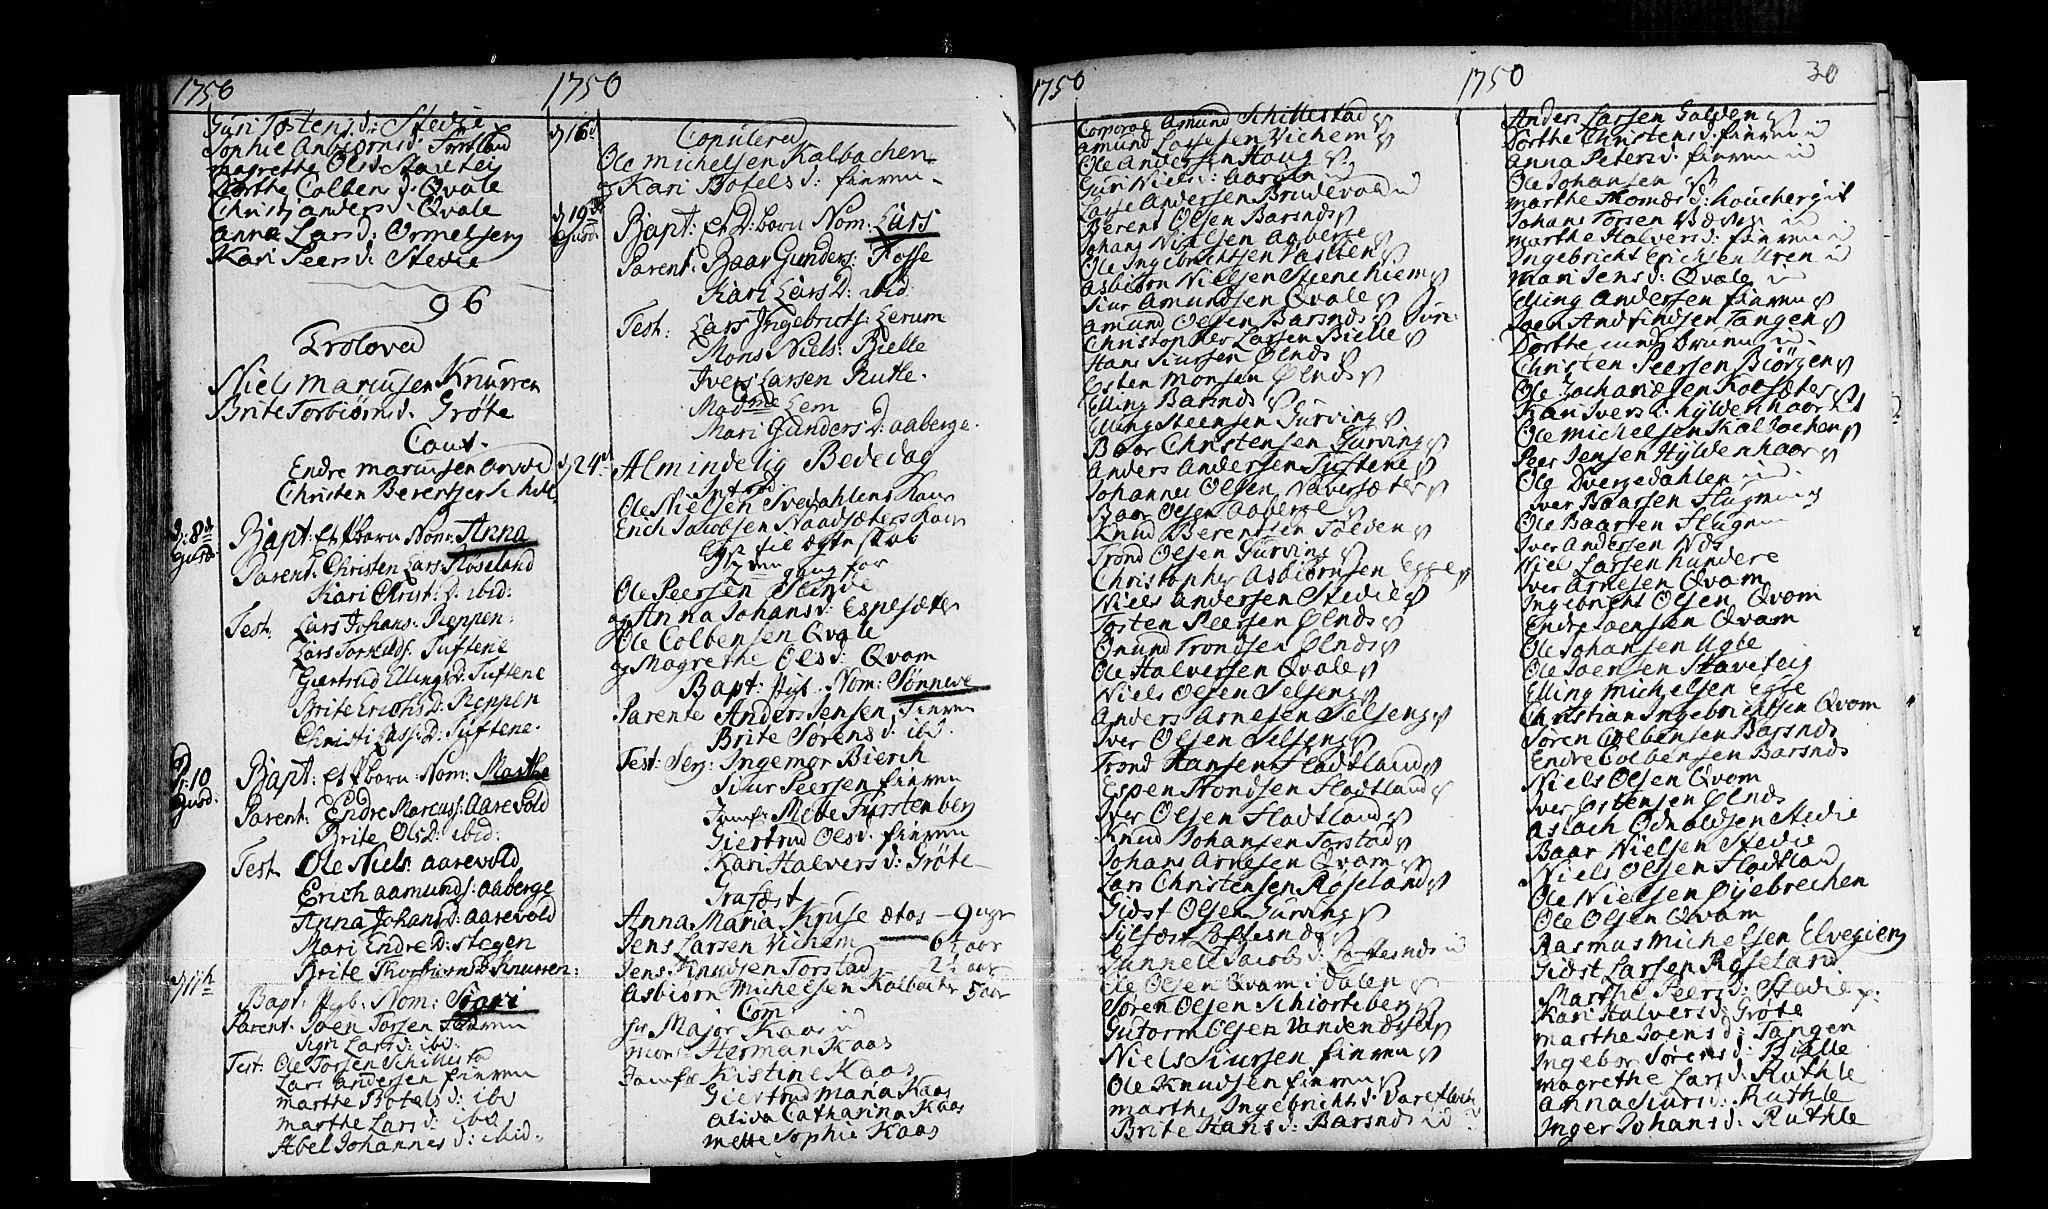 1750
Guri Tostens d: Stedie
Sophie Anbiørns d:
Magrethe Ols d Stavteig
Dorthe Colben d: Qvale
Christj anders d: Qvale
Anna Lars d: Ormelseng
Kari Peers d: Stedie
96
Troloved
Niels Marcusen Knurren
Brite Torbiørns d: Grøte
Caut.
Endre Marcusen
Christen Berentsen
d: 8de
Bapt: et f born Nom: Anna
Parent: Christen Lars: Røseland
Kari Christ: D: ibid:
Test: Lars Johans: Reppen:
Lars Tuftene
Giertrud Ellings D: Tuftene
Brite Erichs D: Reppen
Christi Lass: D: Tuftene.
d: 10
Bapt: et f born Nom: Marthe
Parent: Endre Marcus: Aarevold
Brite Ols D: ibid:
Test. Ole Niels: Aarevold
Erich Aamunds: Aaberge
Anna Johans D: Aarevold
Mari Endre D: Stegen
Brite Thorbiørns D: Knurren:
d 11th
Bapt: Nom: Sigri
Parent. Joen Torsen
Sigri Lars d: ibd:
Test: Ole Torsen
Lars Andersen finven
Marthe Botels d: ibd
Marthe Lars d: ibd
Abel Johannes d: ibid:
1750
d 16d
Copulered
Ole Michelsen Kalbachen
og Kari Botels d: finven
d 19de
Bapt: et D: born Nom: Lars
Parent: Baar Gunders: Fosse
Kari Lars D: ibid
Test: Lars Ingebricts: Lerum
Mons Niels: Bielle
Ivers Larsen Rutle.
Madme Lem
Mari Gunders D: Aaberge.
d 24d
Almindelig Bededag
Introd:
Ole Nielsen Svedahlens Kone
Erich Jacobsen Kone
til ægteskab
gang for
Ole Peersen Slinde
og Anna Johans d: Espesæter
Ole Colbensen Qvale
og Magrethe Ols d: Qvam
Bapt: Nom: Sønneve
Parente Anders Jensen finven
Brite Sørens d: ibd.
Test: Serj: Ingemar Bierch
Siur Peersen finven
Jomfr: Mette Fürstenberg
Giertrud Ols d: finven
Kari Halvers d: Grøte
Grafæst
Anna Maria Kruse ætas
Jens Larsen Vichem 6½ aar
Jens Knudsen Torstad 2½ aar
Asbiørn Michelsen Kalbacher 5 aar
Com
Hr Major Kaas
Mons: Herman Kaas
Jomfr Kistine Kaas
Giertrud Maria Kaas
Aliva Catharina Kaas
Mette Sophie Kaas
1750
Corporal Amund Schillestad
Amund Lassesen Vichem
Ole Andersen Houg
Guri Niels d: Aarøen
Lasse Andersen Brudevold
Berent Olsen Barsnds
Johans Nielsen Aaberge
Ole Ingebrichtsen
Asbiørn Nielsen Steenehiem
Siur Amundsen Qvale
Amund Olsen Barsnds
Christopher Larsen Bielle
Hans Siursen Ølnds
Esten Monsen Ølnds
Elling Barsnds
Elling Steensen Gurving
Baar Christensen Gurving
Anders Andersen Tuftene
Johannes Olsen Naversæter
Baar Olsen Aaberge
Knud Berentsen
Trond Olsen Gurving
Christopher Asbiørnsen Egge
Niels Andersen Stedie
Tosten Peersen Ølnds
Omund Trondsen Ølnds
Ole Halversen Qvale
Niels Olsen Selseng
Anders Arnesen Selseng
Iver Olsen Selseng
Trond Hansen Fladtland
Espen Trondsen Fladtland
Iver Olsen Fladtland
Knud Johansen Torstad
Johans Arnesen Qvam
Lars Christensen Røseland
Gidst Olsen Gurving
Sylfæst Loftesnds
Gunnele Jacobs d: Loftesnds
Ole Olsen Qvam i Dalen
Søren Olsen Schiorteberg
Gutorm Olsen
Niels Siursen finven
Ole Knudsen finven
Marthe Ingebricht d:
Brite Hans d: Barsnds
1750
30
Anders Larsen Galden
Dorthe Christens d: finven
Anna Peters d: finven
Ole Johansen
Marthe Thomæs d:
Johans Torsen
Marthe Halvers d: finven
Ingebricht Erichsen Uren
Mari Jens d: Qvale
Elling Andersen finven
Joen Andfindsen Tangen
Dorthe
Christen Peersen Biørgen
Ole Zachariæsen
Kari Ivers d: Hyldenhaar
Ole Michelsen Kalbachen
Peer Jensen Hyldenhaar
Ole Dvergedahlen
Iver Baarsen Flugum
Ole Baarsen Flugum
Iver Andersen Nds
Niels Larsen Hundere
Iver Arnesen Qvam
Ingebricht Olsen Qvam
Endre Joensen Qvam
Ole Johansen Ugle
Ole Joensen Staveteig
Elling Michelsen Egge
Christian Ingebrichtsen Qvam
Søren Colbensen Barsnds
Endre Colbensen Barsnds
Niels Olsen Qvam
Iver Ostensen Ølnds
Aslach Odnaldsen Stedie
Baar Nielsen Stedie
Niels Olsen Fladtland
Ole Nielsen Øyebrechen
Ole Olsen Qvam
Rasmus Michelsen Elvegien
Gidst Larsen Røseland
Marthe Peers d: Stedie
Kari Halvers d: Grøte
Marthe Joens d: Tangen
Ingebor Sørens d: Bielle
Magrethe Lars d: Ruthle
Anna Siurs d: Ruthle
Inger Johans d: Ruthle